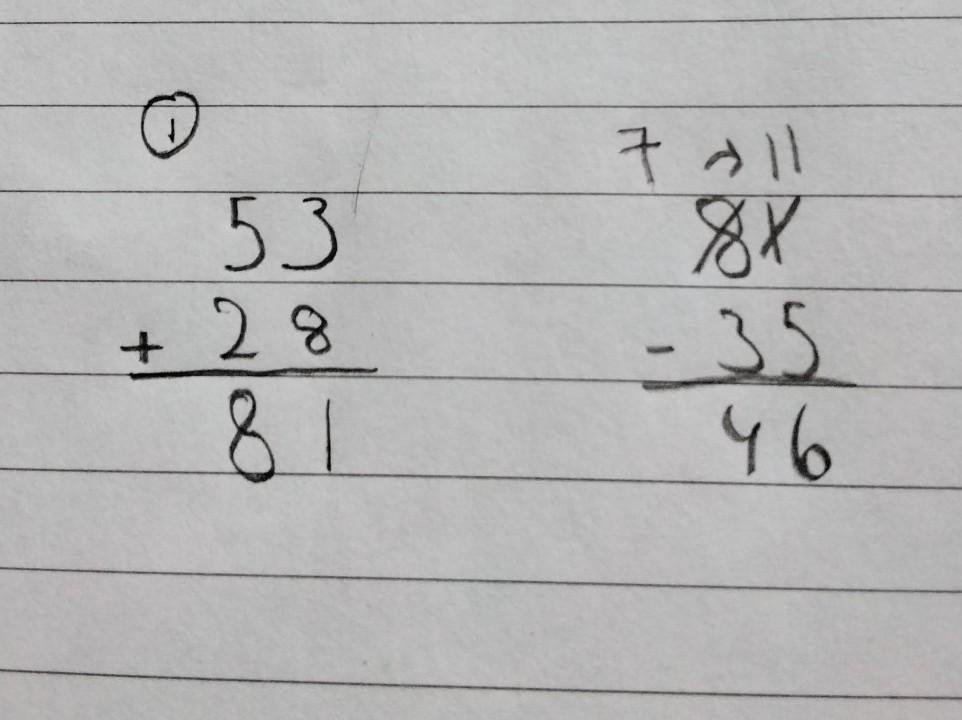 1 7 → 11
53 81
+ 28 - 35
81 46